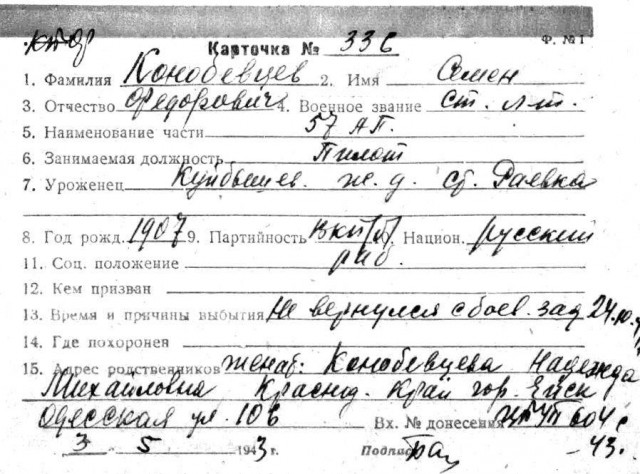 Ф. №1
Карточка № 336
1. Фамилия Конобевцев 2. Имя Семен
3. Отчество Федорович 4. Военное звание ст. лт.
5. Наименование части 57 АП.
6. Занимаемая должность Пилот
7. Уроженец Куйбышев. ж. д. ст. Раевка
8. Год рожд. 1907 9. Партийность ВКП(б), Национ. русский
11. Соц. положение раб.
12. Кем призван
13. Время и причины выбытия Не вернулся с боев. зад 24.10.
14. Где похоронен
15. Адрес родственников женат: Конобевцева Надежда
Михайловна Краснод. край гор. Ейск
Одесская ул. 106 Вх. № донесения 604с
3 5 1943 г. Подпись -43.